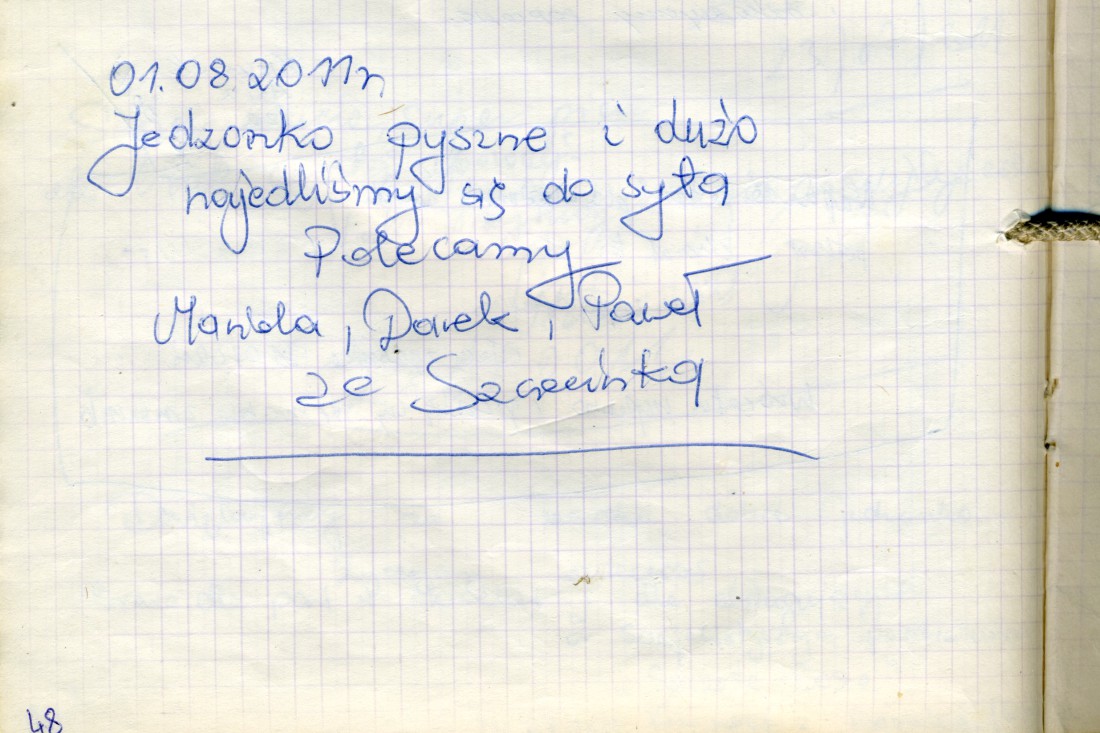 01.08.2011r
Jedzonko pyszne i dużo
najedliśmy się do syta
Polecamy
Mariola, Darek, Paweł
ze Szczecinka
48